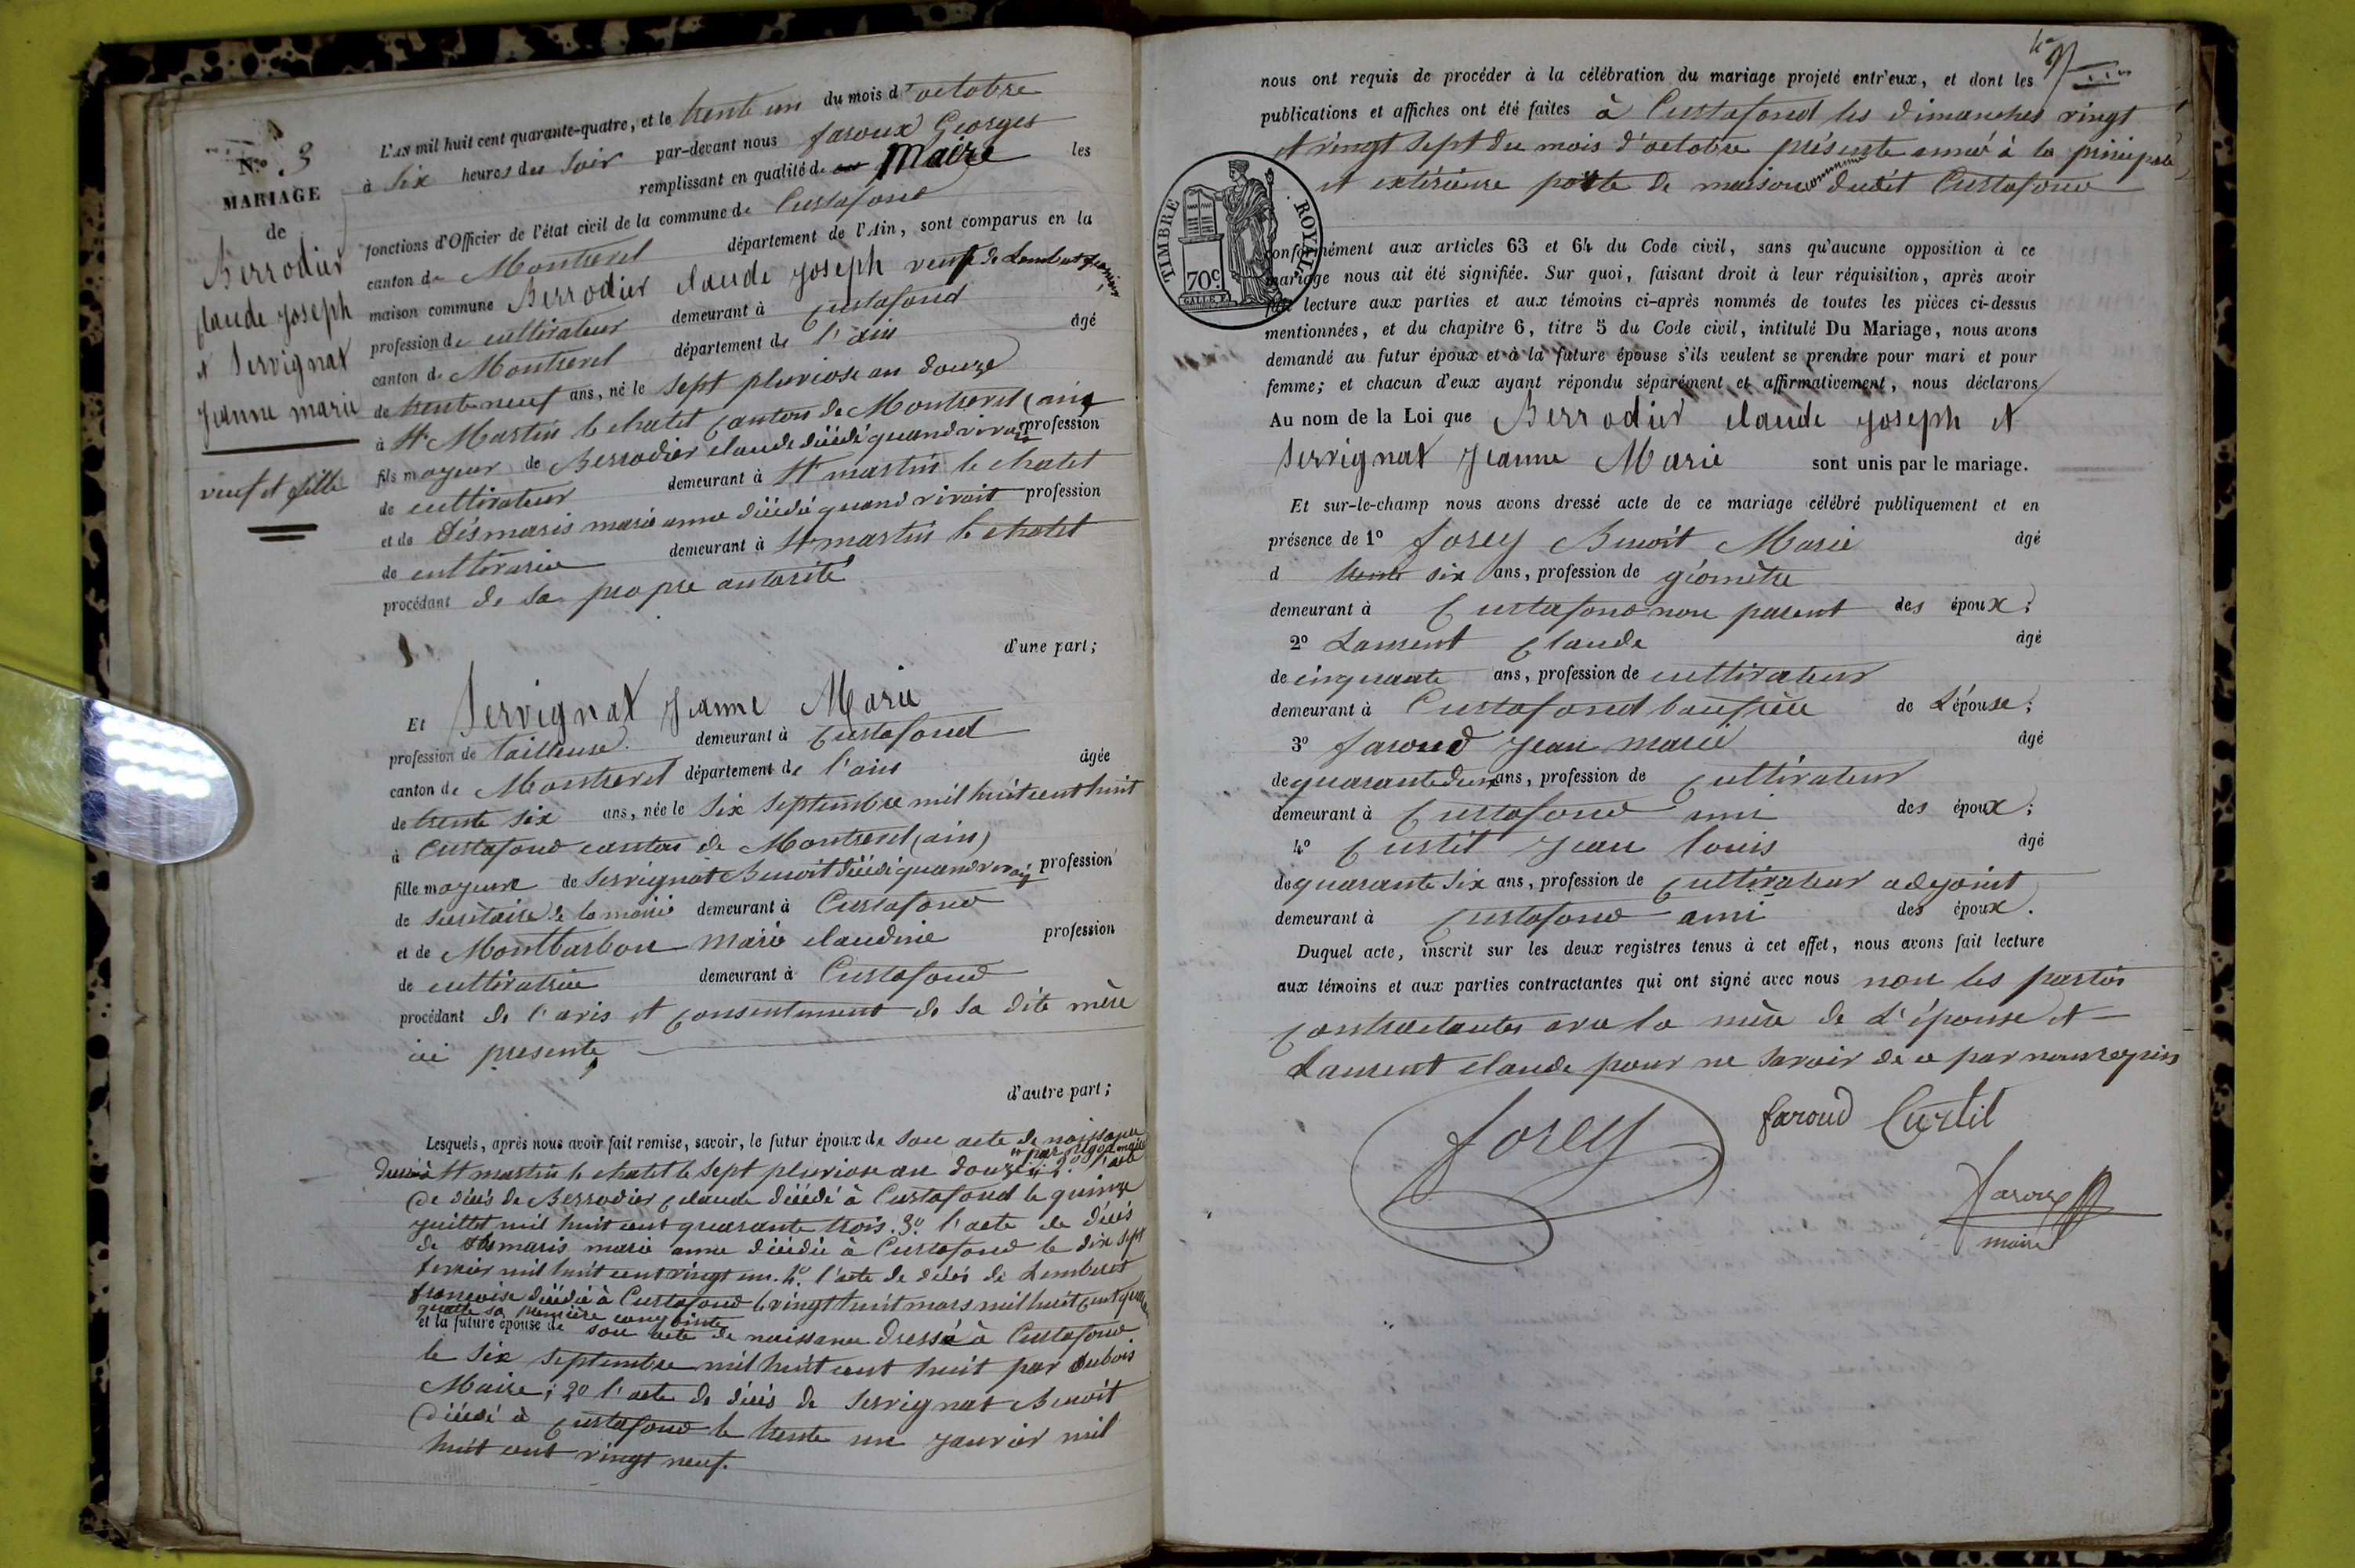 N.o 3
MARIAGE
de
Berrodier
Claude joseph
et Servignat
Jeanne marie
veuf et fille
L'AN mil huit cent quarante-quatre, et le trente un du mois d'octobre
à six heures du soir par-devant nous faroux Georges
remplissant en qualité de Maire les
fonctions d'Officier de l'état civil de la commune de Curtafond
canton de Montrevel département de l'Ain, sont comparus en la
maison commune Berrodier claude joseph veuf de Lemberet françoise
profession de cultivateur demeurant à Curtafond
canton de Montrevel département de l'ain âgé
de trente neuf ans, né le sept pluviose an douze
à St Martin le chatel canton de Montrevel (ain)
fils majeur de Berrodier claude décédé quand vivait profession
de cultivateur demeurant à St martin le chatel
et de Désmaris marie anne décédée quand vivait profession
de cultivatrice demeurant à St martin le chatel
procédant de sa propre autorité
d'une part;
Et Servignat Jeanne Marie
profession de tailleuse demeurant à Curtafond
canton de Montrevel département de l'ain âgée
de trente six ans, née le six septembre mil huit cent huit
à Curtafond canton de Montrevel (ain)
fille majeure de Servignat Benoit décédé quand vivait profession
de secrétaire de la mairie demeurant à Curtafond
et de Montbarbon marie claudine profession
de cultivatrice demeurant à Curtafond
procédant de l'avis et consentement de sa dite mère
ici presente
d'autre part;
Lesquels, après nous avoir fait remise, savoir, le futur époux de son acte de naissance
dressé à St martin le chatel le sept pluviose an douze " par nigod maire " 2o l'acte
de décès de Berrodier claude décédé à Curtafond le quinze
juillet mil huit cent quarante trois. 3o l'acte de décès
de désmaris marie anne décédée à Curtafond le dix sept
fevrier mil huit cent vingt un. 4o l'acte de décès de Lemberet
françoise décédée à Curtafond le vingt huit mars mil huit cent quarante
quatre sa première conjointe
et la future épouse de son acte de naissance dressé à Curtafond
le six septembre mil huit cent huit par dubois
Maire; 2o l'acte de décès de Servignat Benoit
décédé à Curtafond le trente un janvier mil
huit cent vingt neuf.
nous ont requis de procéder à la célébration du mariage projeté entr'eux, et dont les
publications et affiches ont été faites à Curtafond les dimanches vingt
et vingt sept du mois d'octobre présente année à la principale
et extérieure porte de maison commune dudit Curtafond
TIMBRE ROYAL
70c.
conformément aux articles 63 et 64 du Code civil, sans qu'aucune opposition à ce
mariage nous ait été signifiée. Sur quoi, faisant droit à leur réquisition, après avoir
fait lecture aux parties et aux témoins ci-après nommés de toutes les pièces ci-dessus
mentionnées, et du chapitre 6, titre 5 du Code civil, intitulé Du Mariage, nous avons
demandé au futur époux et à la future épouse s'ils veulent se prendre pour mari et pour
femme; et chacun d'eux ayant répondu séparément et affirmativement, nous déclarons
Au nom de la Loi que Berrodier claude joseph et
Servignat Jeanne Marie sont unis par le mariage.
Et sur-le-champ nous avons dressé acte de ce mariage célébré publiquement et en
présence de 1o forey Benoit Marie âgé
d trente six ans, profession de géomètre
demeurant à Curtafond non parent des époux;
2o Laurent Claude âgé
de cinquante ans, profession de cultivateur
demeurant à Curtafond beaufrère de L'épouse;
3o faroud Jean marie âgé
de quarante deux ans, profession de Cultivateur
demeurant à Curtafond ami des époux;
4o Curtil Jean louis âgé
de quarante six ans, profession de Cultivateur adjoint
demeurant à Curtafond ami des époux.
Duquel acte, inscrit sur les deux registres tenus à cet effet, nous avons fait lecture
aux témoins et aux parties contractantes qui ont signé avec nous non les parties
Contractantes avec la mère de L'épouse et
Laurent claude pour ne savoir de ce par nous requis
forey
faroud Curtil
faroux
maire